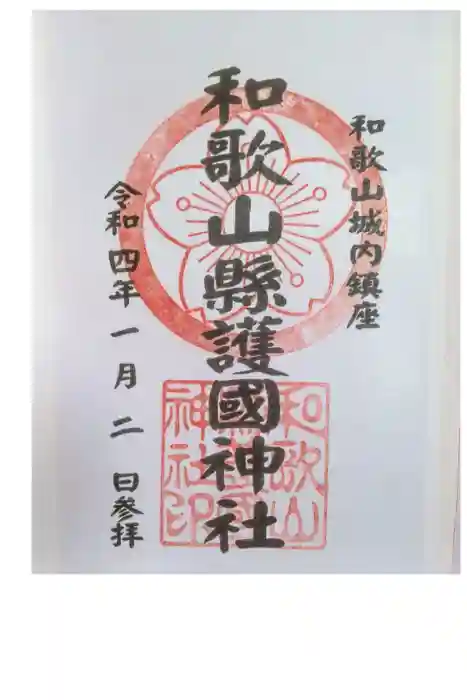 和歌山城内鎮座
和歌山縣護國神社
令和四年一月二日参拝
和歌山
縣護國
神社印